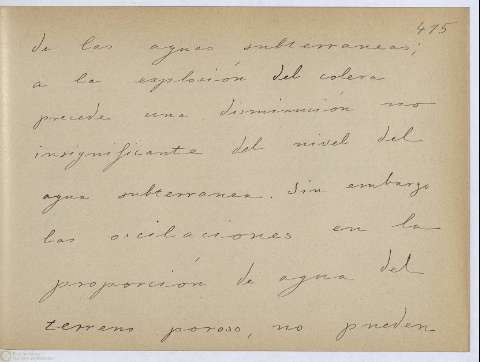 415
de las aguas subterraneas;
a la explosión del colera
precede una disminución no
insignificante del nivel del
agua subterranea. Sin embargo
las oscilaciones en la
proporción de agua del
terreno poroso, no pueden